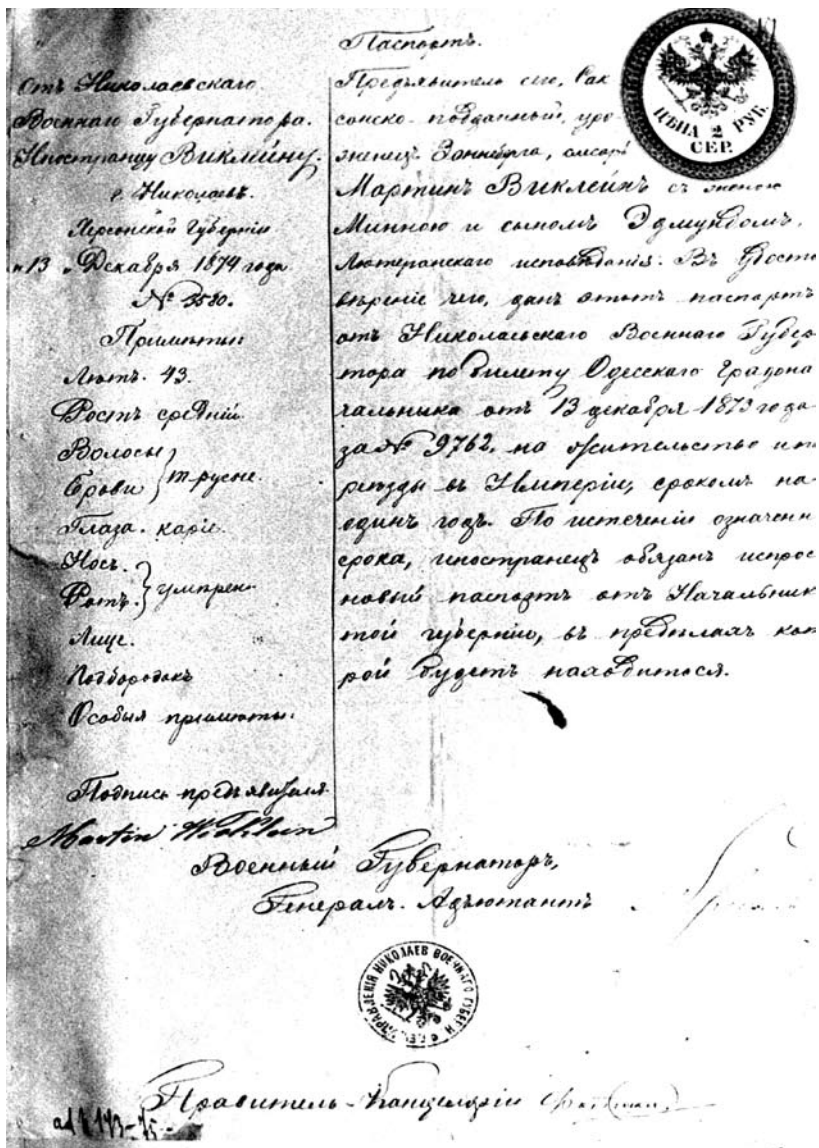 Паспортъ.
ЦѢНА 2 РУБ. СЕР.
Отъ Николаевскаго
Военнаго Губернатора.
Иностранцу Виклейну.
г. Николаевъ.
Херсонской Губерніи
"13" Декабря 1874 года
№ 3580.
Примѣты:
Лѣтъ. 43.
Ростъ средній
Волосы
Брови } т. русые.
Глаза. каріе.
Носъ.
Ротъ. } умѣрен.
Лице.
Подбородокъ
Особыя примѣты.
Подпись предъявителя
Martin Wichlein
Предъявитель сего, Сак
сонско-подданный, уро-
женецъ Зоннеберга,
Мартинъ Виклейнъ съ женою
Минною и сыномъ Эдмундомъ,
Лютеранскаго исповѣданія. Въ удосто
вѣреніе чего, данъ этотъ паспортъ
отъ Николаевскаго Военнаго Губер
тора по билету Одесскаго Градона
чальника отъ 13 декабря 1873 года
за № 9762, на жительство и п
реѣзды въ Имперіи, срокомъ на
одинъ годъ. По истеченіи означенн
срока, иностранецъ обязанъ испрос
новый паспортъ отъ Начальник
той губерніи, въ предѣлахъ кот
рой будетъ находиться.
Военный Губернаторъ,
Генералъ-Адъютантъ
УПРАВЛЕНІЯ НИКОЛАЕВ ВОЕННАГО ГУБЕРН
Правитель Канцеляріи